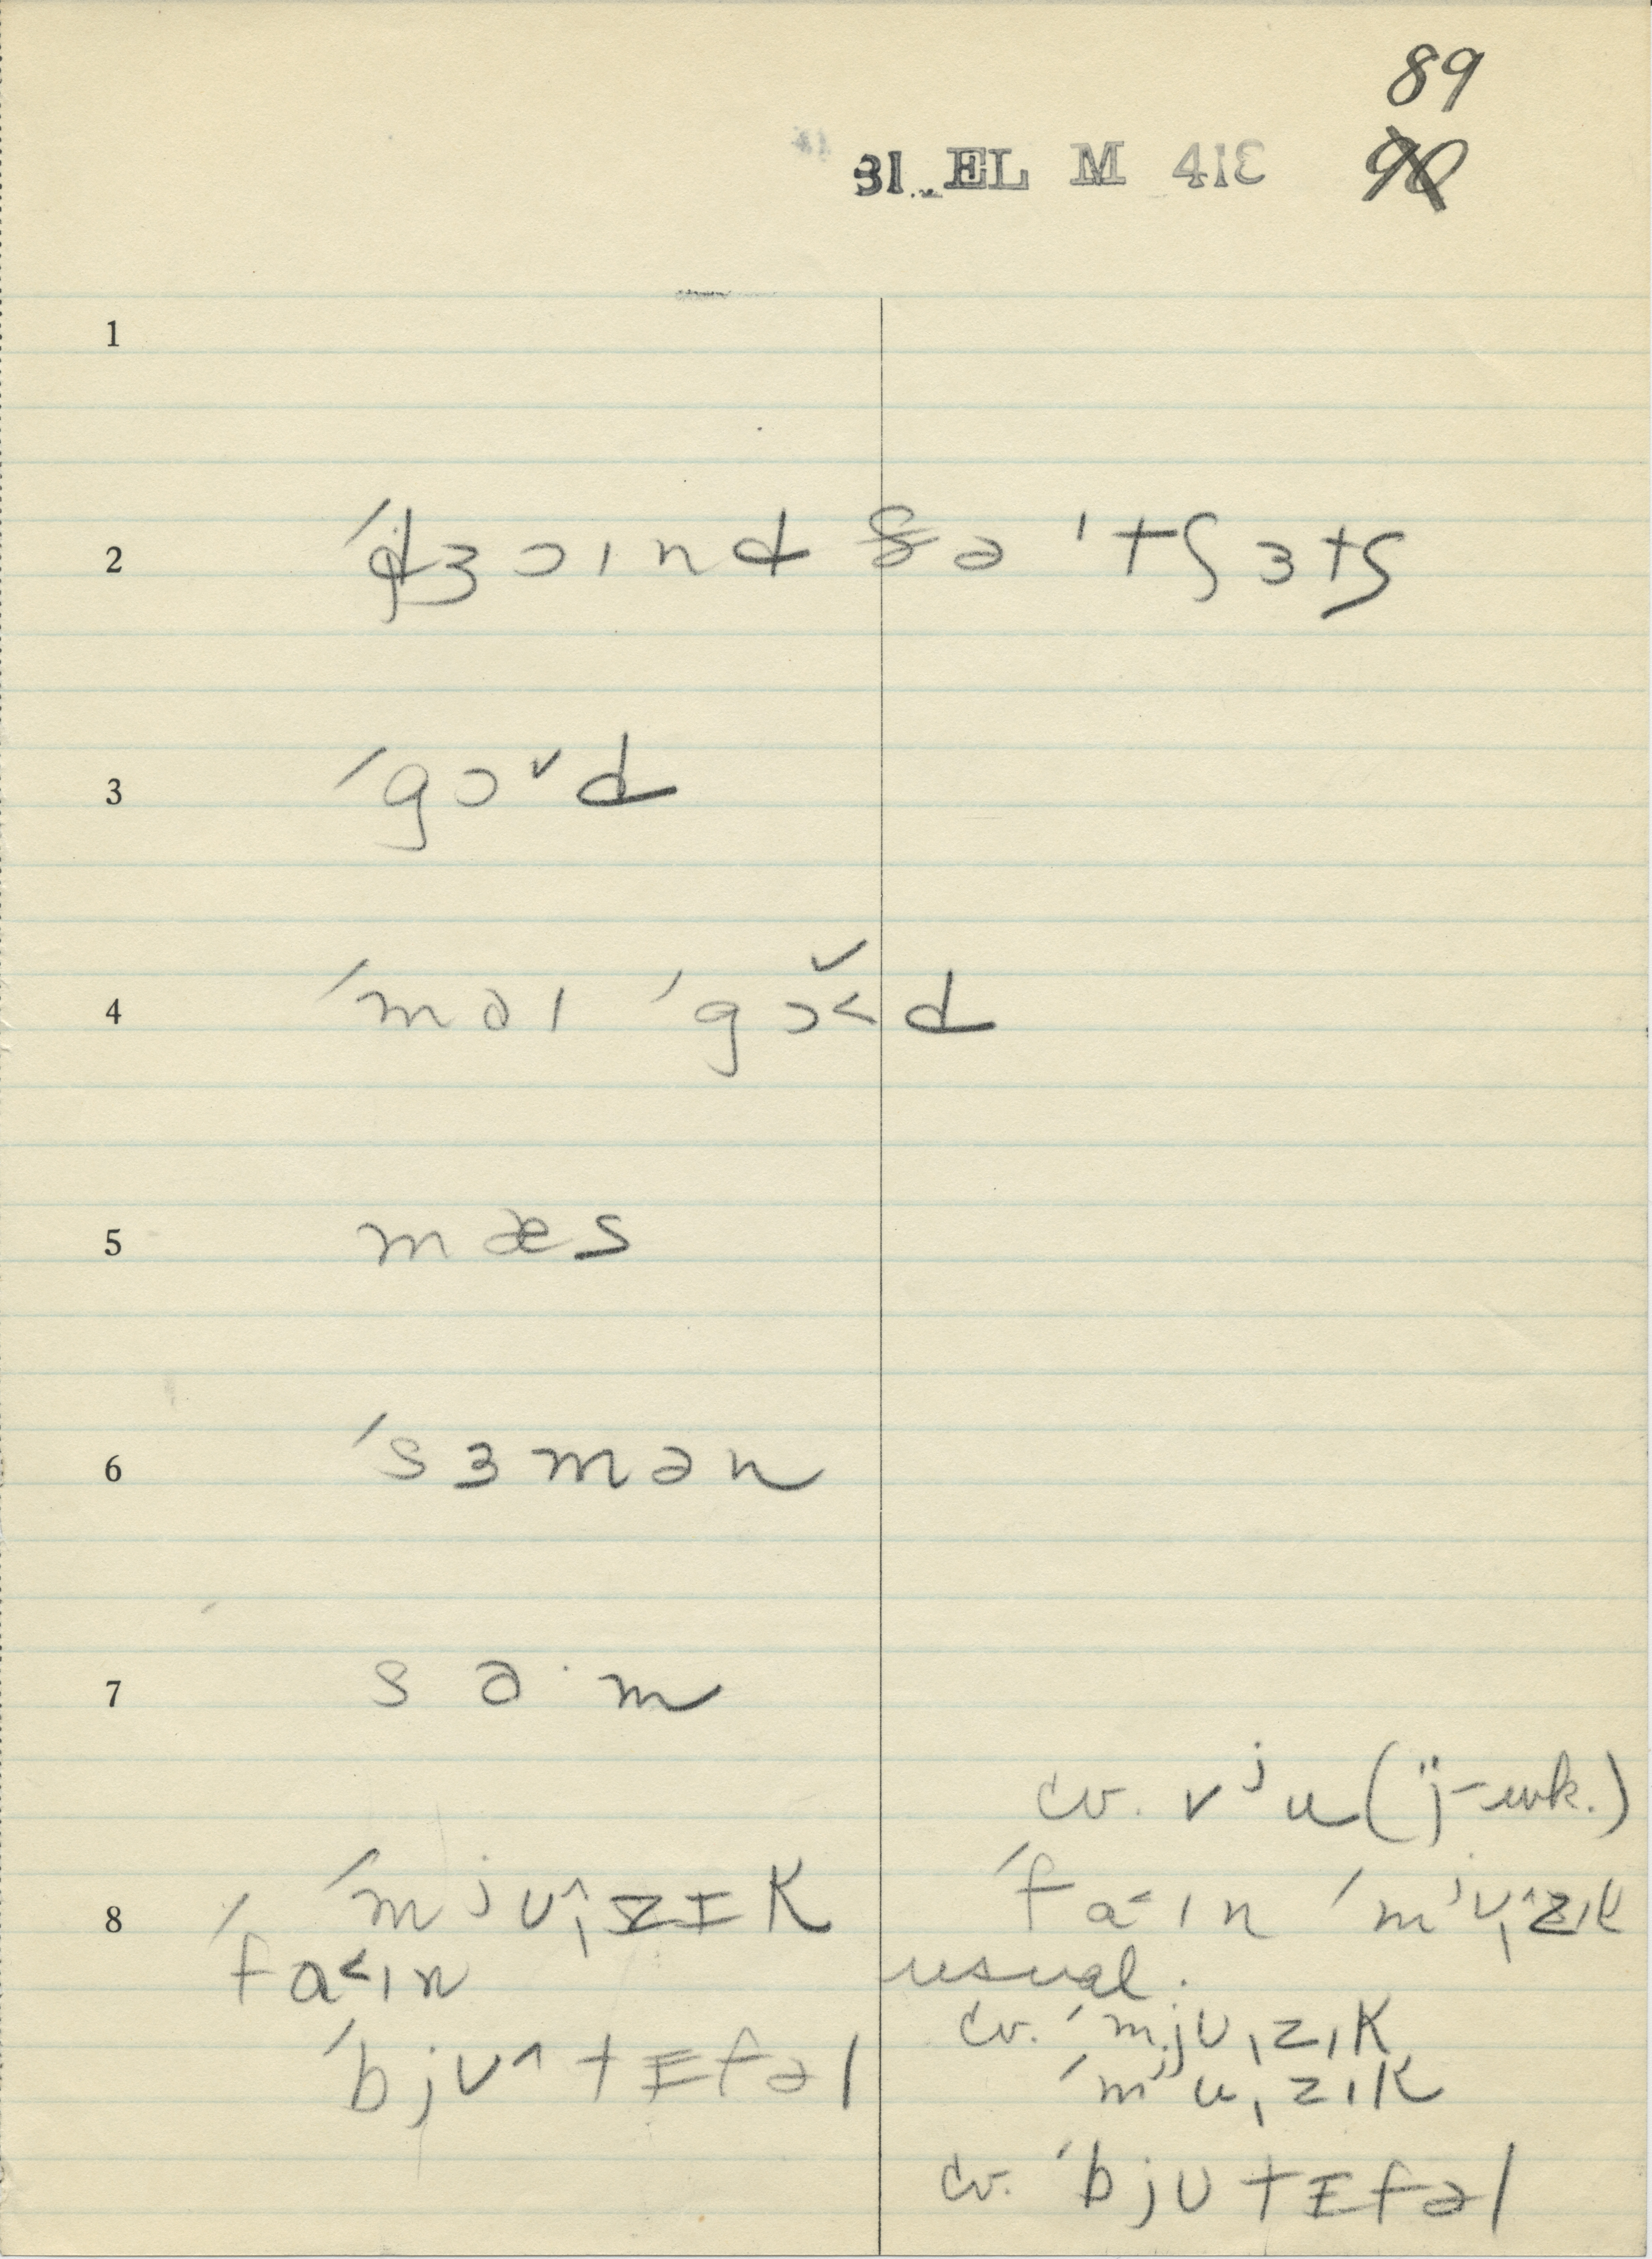 89
31 EL M 413 90
1
2 ˈdʒɔɪnd ðə ˈtʃɜtʃ
3 ˈgɔˇd
4 ˈmaɪ ˈgɔ̌˂d
5 mæs
6 ˈsɜmən
7 sɑ·m
cv. vʲu (j-wk.)
8 ˈmʲʊ^ˌzɪk ˈfa˂ɪn ˈmʲʊ^ˌzɪk
ˈfa˂ɪn usual.
cv. ˈmjʊˌzɪk
ˈbjʊ^tɪfəl ˈmʲuˌzɪk
cv. ˈbjʊtɪfəl